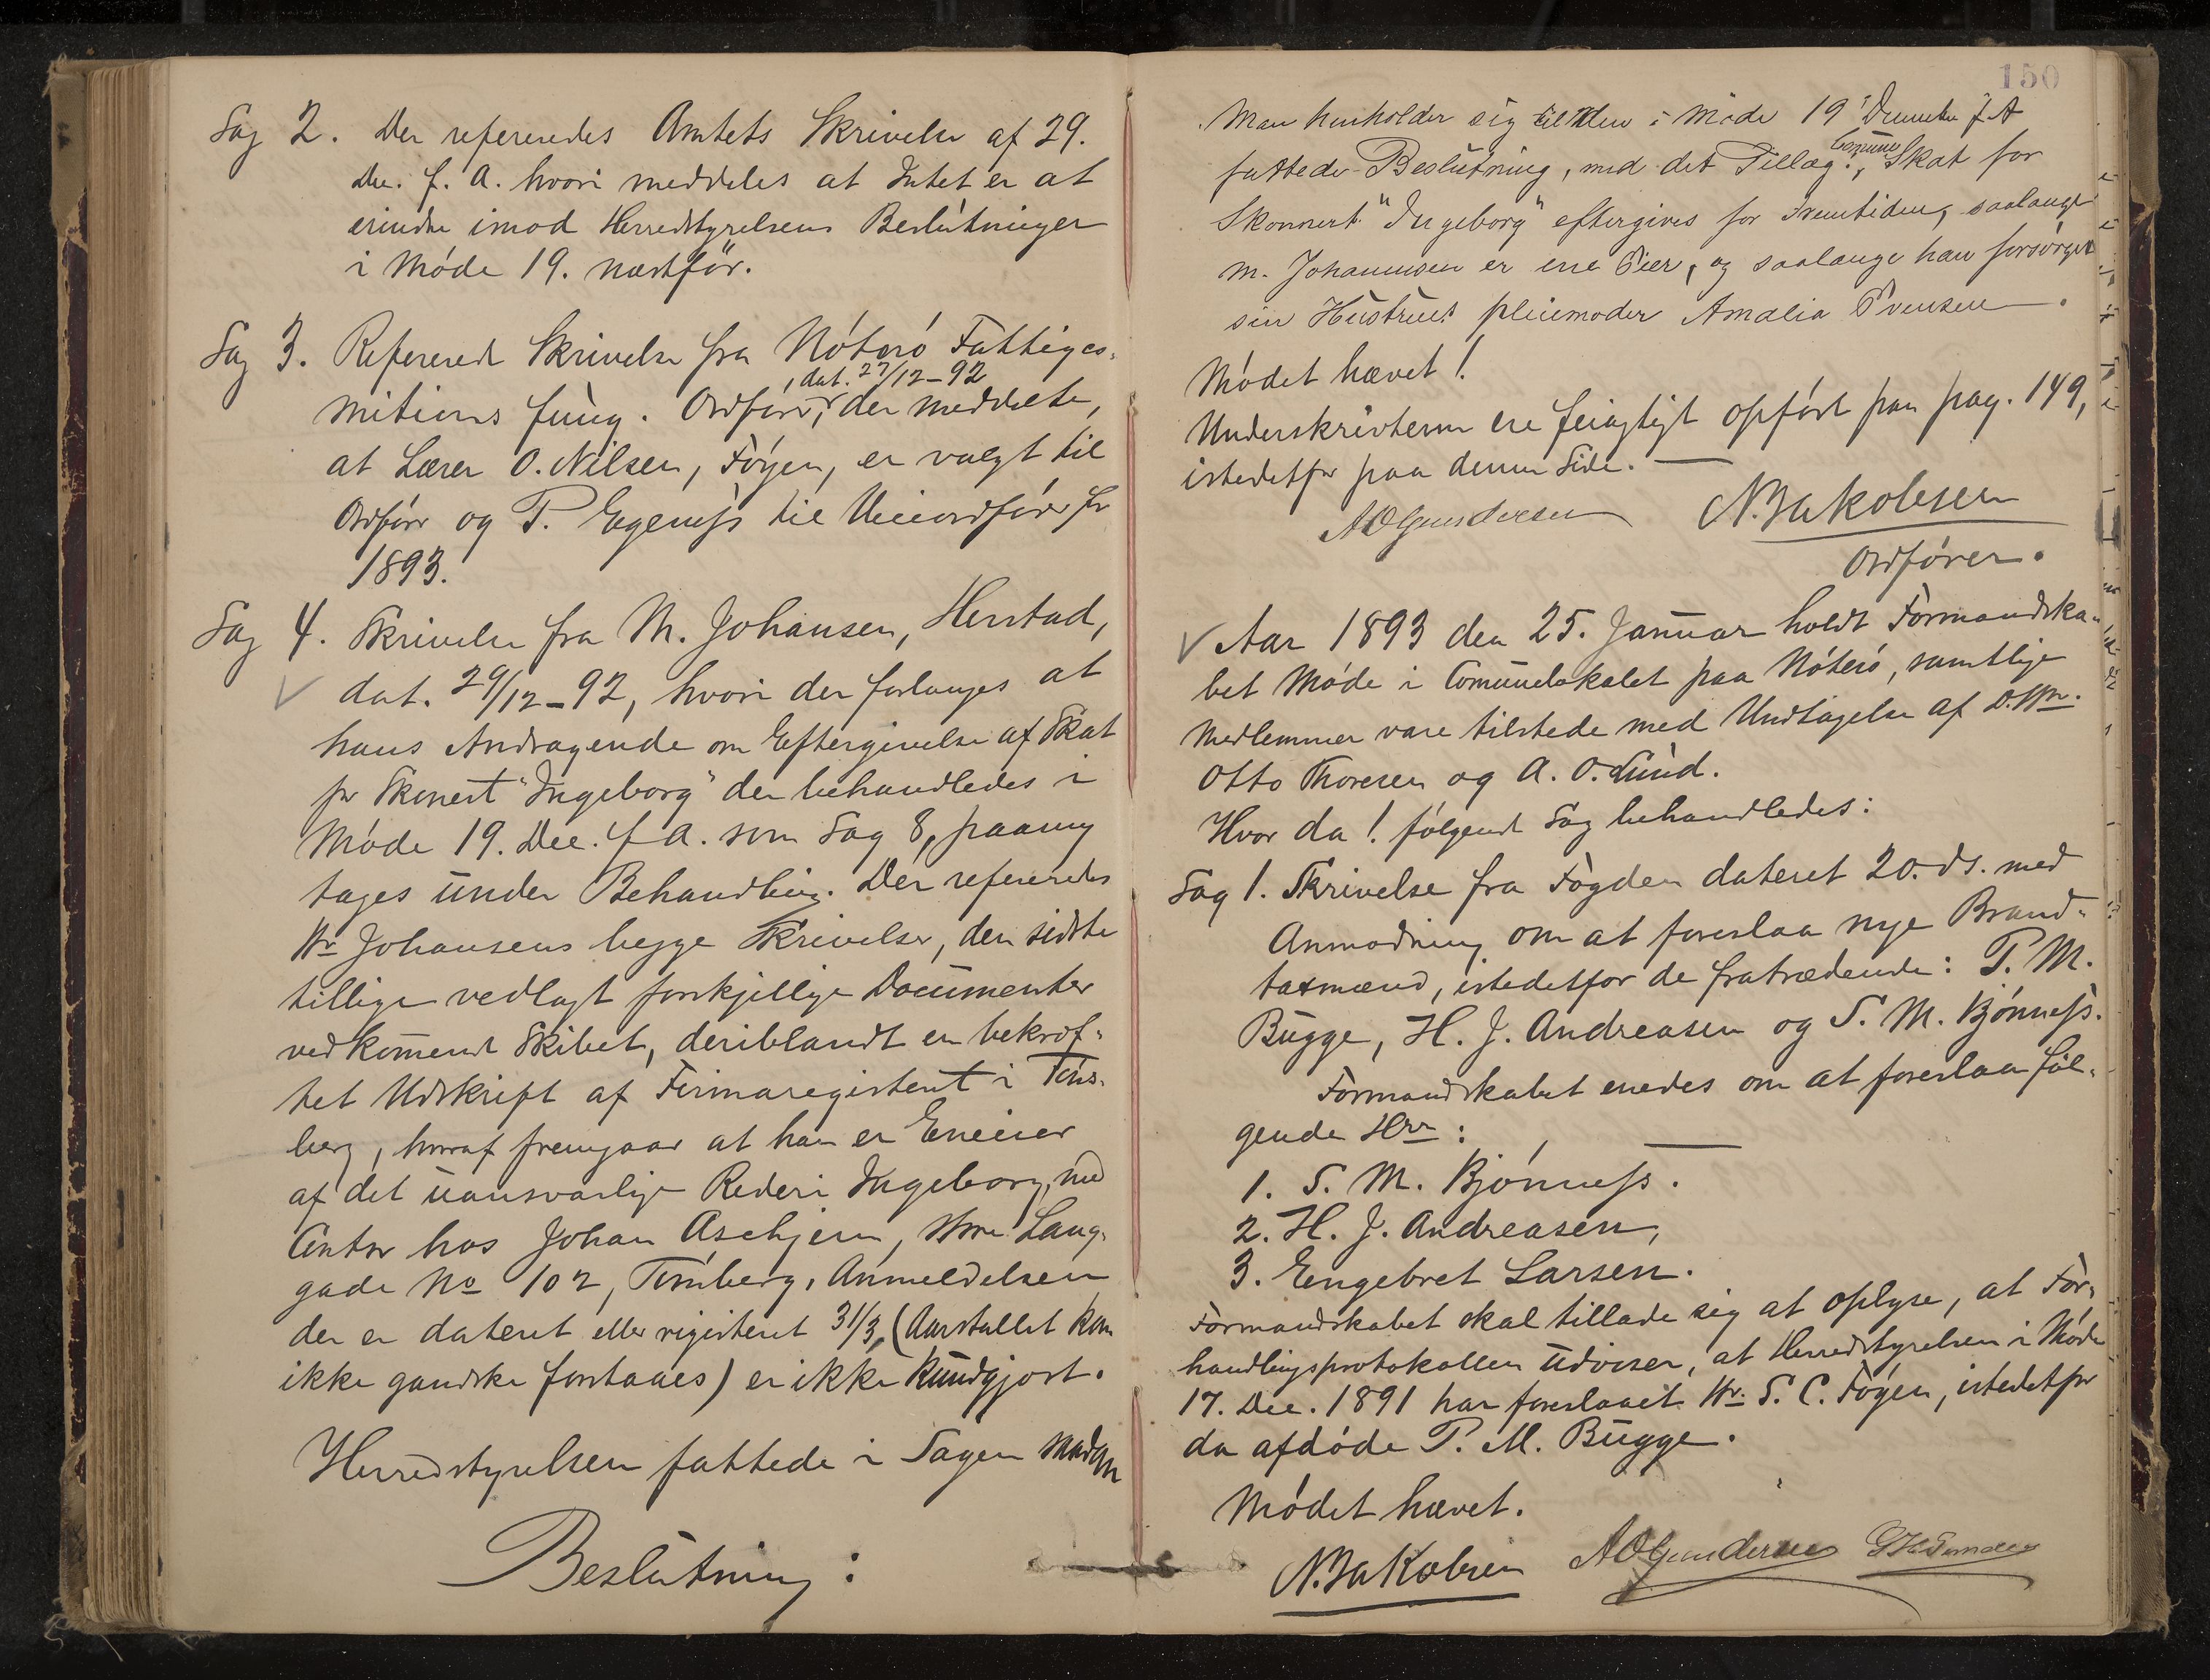 Sag 2. Der refereredes Amtets Skrivelse af 29.
Dec. f. A. hvori meddeles at Intet er at
erindre imod Herredstyrelsens Beslutninger
i Møde 19. næstfør.
Sag 3. Refereret Skrivelse fra Nøterø Fattigco-
mitions fung. Ordfører, dat. 27/12-92 der meddelte,
at Lærer O. Nilsen, Føyen, er valgt til
Ordfører og P. Eegeness til Viceordfører for
1893.
Sag 4. Skrivelse fra M. Johansen, Herstad,
dat. 29/12-92, hvori der forlanges at
hans Andragende om Eftergivelse af Skat
for Skonert "Ingeborg" der behandledes i
Møde 19. Dec. f. A. som Sag 8, paany
tages under Behandling. Der refereredes
Hr Johansens begge Skrivelser, den sidste
tillige vedlagt forskjellige Documenter
vedkommende Skibet, deriblandt en bekræf-
tet Udskrift af Firmaregisteret i Tøns-
berg, hvoraf fremgaar at han er Eneeier
af det uansvarlige Rederi Ingeborg, med
Contor hos Johan Aschjem, Store Lang-
gade No 102, Tønsberg, Anmeldelsen
der er dateret eller registeret 31/3, (Aarstallet kan
ikke ganske forstaaes) er ikke kundgjort.
Herredstyrelsen fattede i Sagen saadan
Beslutning:
150
Man henholder sig til den i Møde 19 December f. A
fattede Beslutning, med det Tillæg: Comune Skat for
Skonnert "Ingeborg" eftergives for Fremtiden, saalange
M. Johannesen er ene Eier, og saalange han forsørger
sin Hustrues pleiemoder Amalia Svensen.
Mødet hævet!
Underskrivterne ere feiagtigt opført paa pag. 149,
istedetfor paa denne Side.
A O Gundersen N. Jakobsen
Ordfører.
Aar 1893 den 25. Januar holdt Formandska-
bet Møde i Comunelokalet paa Nøterø, samtlige
Medlemmer vare tilstede med Undtagelse af D.Hrr.
Otto Thoresen og A. O. Lund.
Hvor da! følgende Sag behandledes:
Sag 1. Skrivelse fra Fogden dateret 20. ds. med
Anmodning om at foreslaa nye Brand-
taxmænd, istedetfor de fratrædende: P. M.
Bugge, H. J. Andreasen og S. M. Bjønness.
Formandskabet enedes om at foreslaa føl-
gende Hrr:
1. S. M. Bjønness.
2. H. J. Andreasen,
3. Engebret Larsen.
Formandskabet skal tillade sig at oplyse, at For-
handlingsprotokollen udviser, at Herredstyrelsen i Møde
17. Dec. 1891 har foreslaaet Hr. S. C. Føyen, istedetfor
da afdøde P. M. Bugge.
Mødet hævet.
N. Jakobsen A O Gundersen